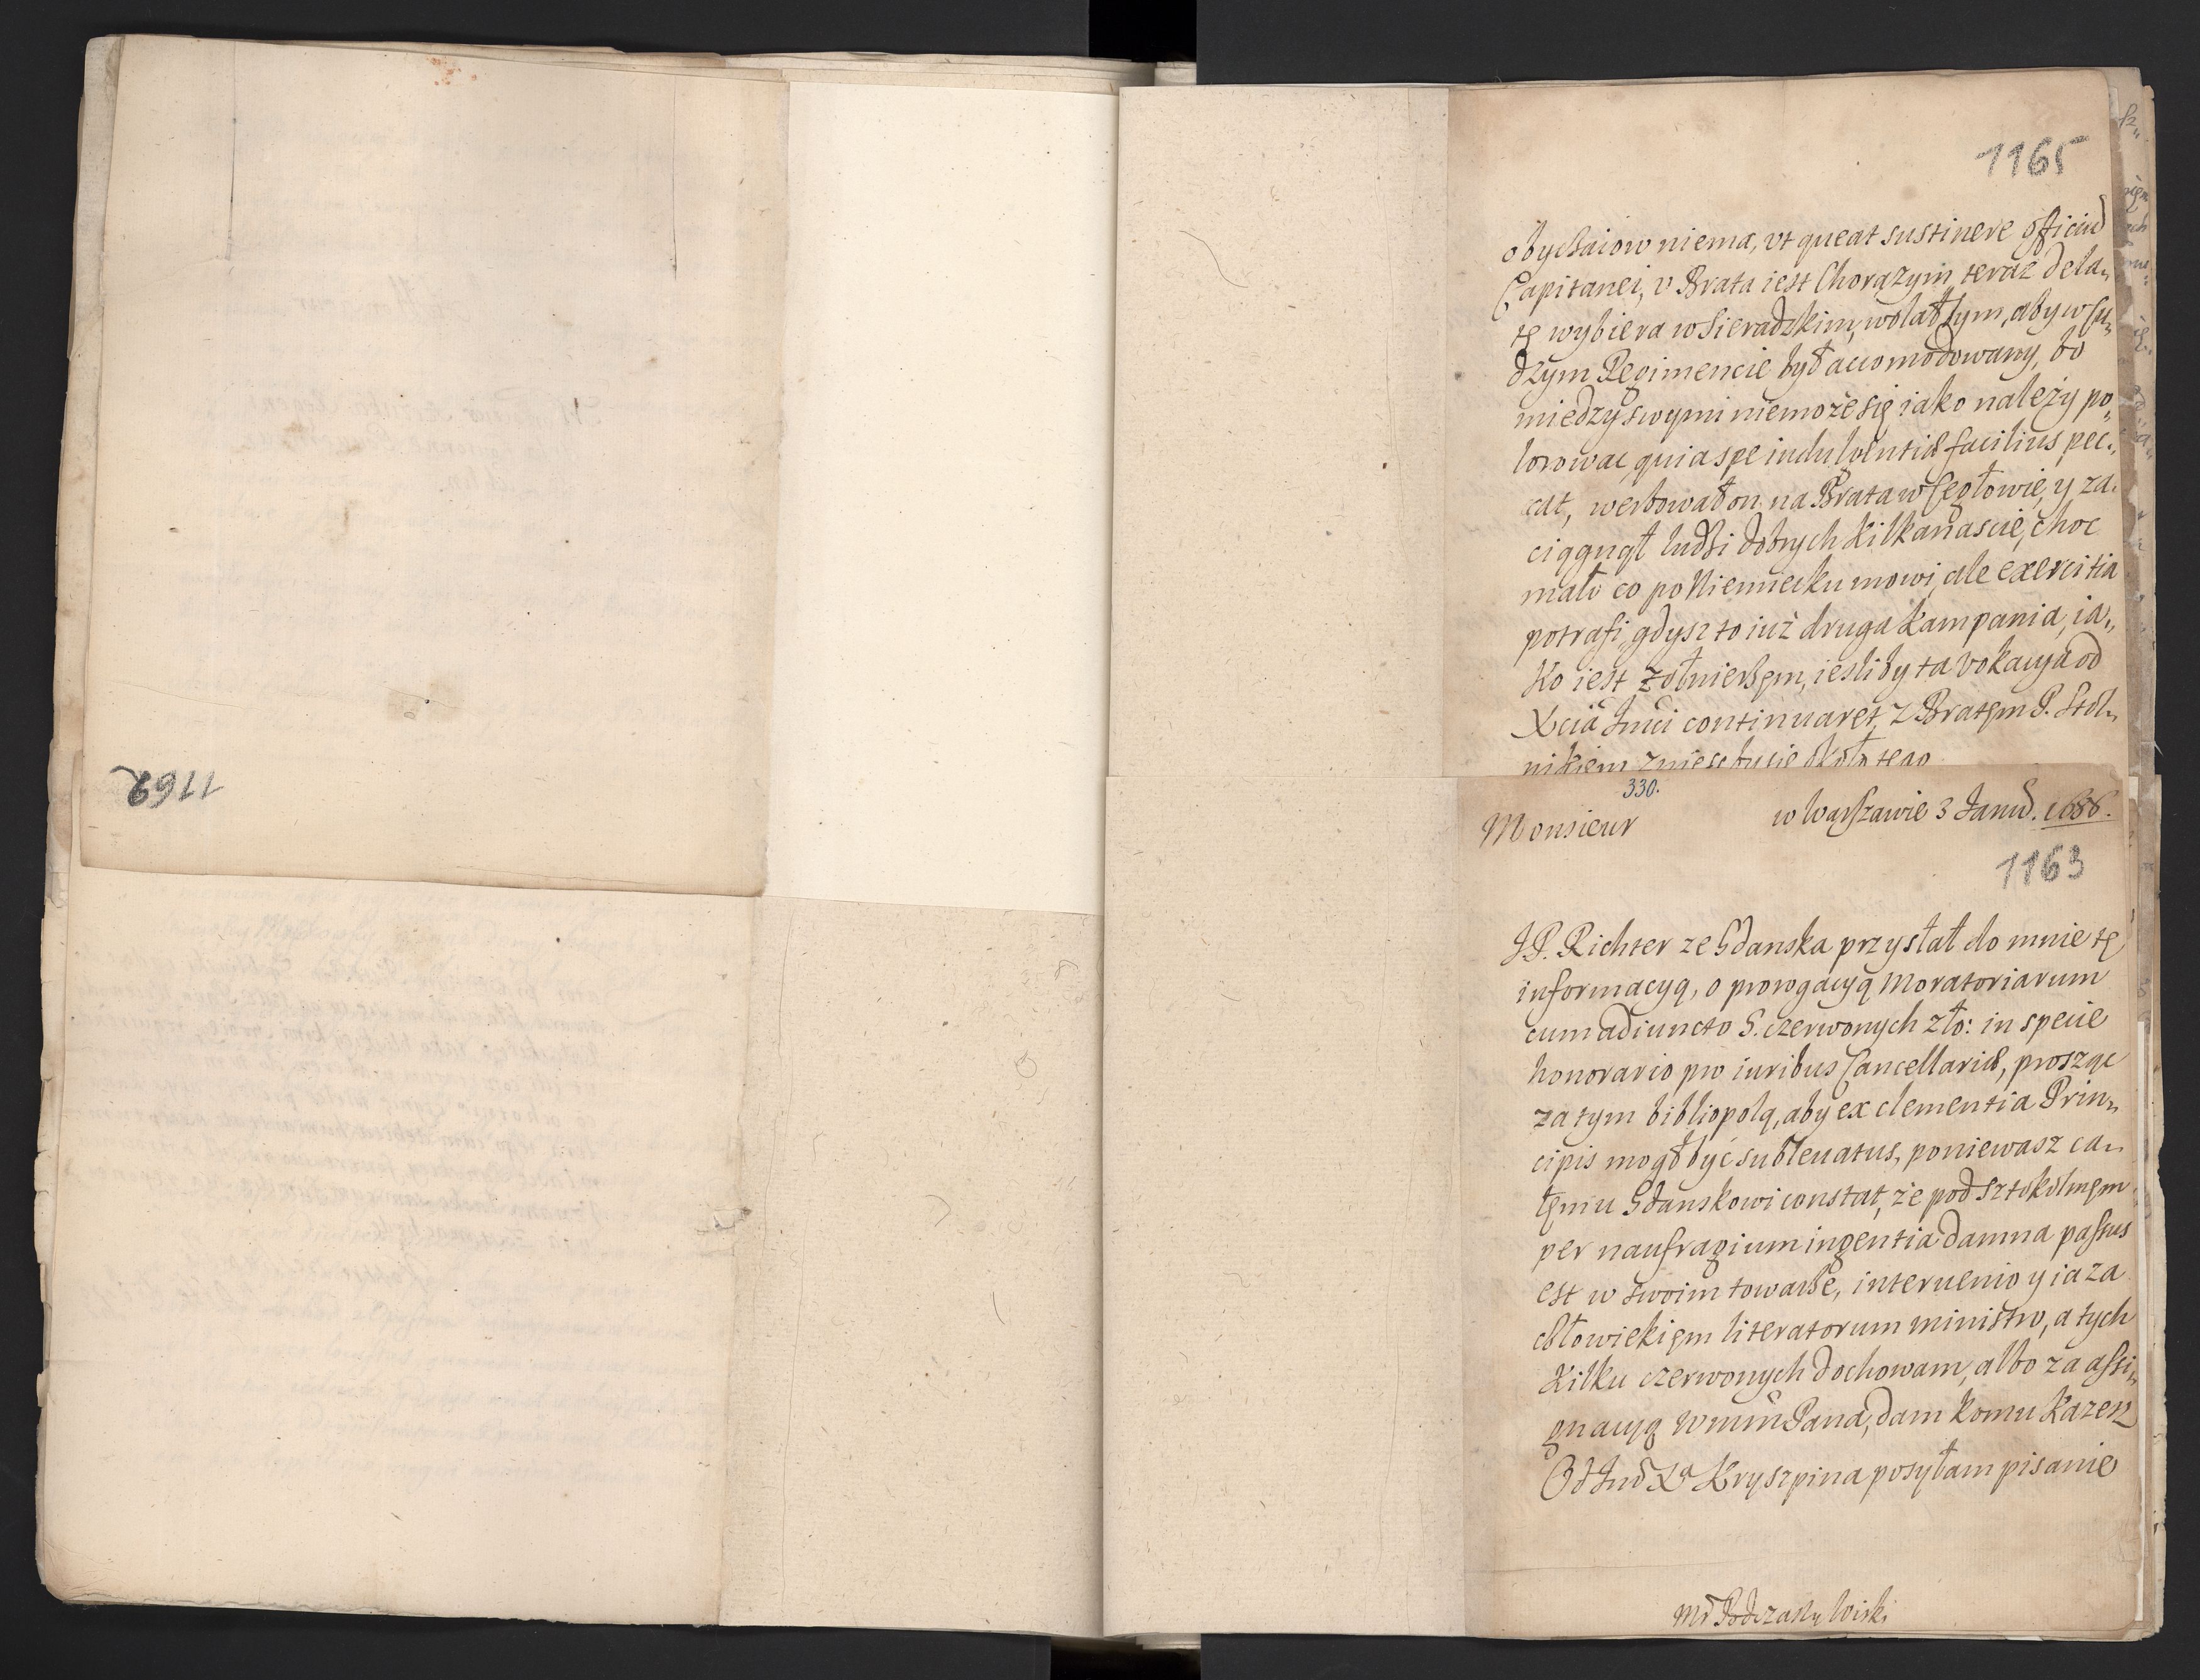 1162
1165
obyczaiow niema, vt queat sustinere officiu
Capitanei, v Brata iest Chorązym teraz dela„
tę wybiera w Sieradzkim, wolałbym, aby w cu„
dzym Regimencie był accomodowany, bo
miedzy swymi niemoże się iako należy po„
lorowac, quia spe indulgentiæ facilius pec„
cat, werbował on na Brata w Cegłowie, y za„
ciągnął ludzi dobrych kilkanascie, choc
mało co po Niemiecku mowi, ale exercitia
potrafi, gdysz to iuż druga kampania, ia„
ko iest żołnierzem, iesliby ta vokacya od
Xcia Jmci continuaret, z Bratem P. Stol„
nikiem zniesc by się około tego
330.
Monsieur
w Warszawie 3 Janu. 1686.
1163
J.P. Richter ze Gdanska przysłał do mnie tę
informacyą, o prorogacyą Moratoriarum
cum adiuncto 5. czerwonych zło: in specie
honorario pro iuribus Cancellariæ, prosząc
za tym bibliopolą, aby ex clementia Prin„
cipis mogł być subleuatus, poniewasz ca„
łemu Gdanskowi constat, że pod Sztokolmem
per naufragium ingentia damna passus
est w swoim towarze, interuenio y ia za
człowiekiem literatorum ministro, a tych
kilku czerwonych dochowam, albo za assi„
gnacyą Wmm Pana, dam komu każesz
Od Jmo Xa Kryszpina posyłam pisanie
Mr Podczaszy Wiski